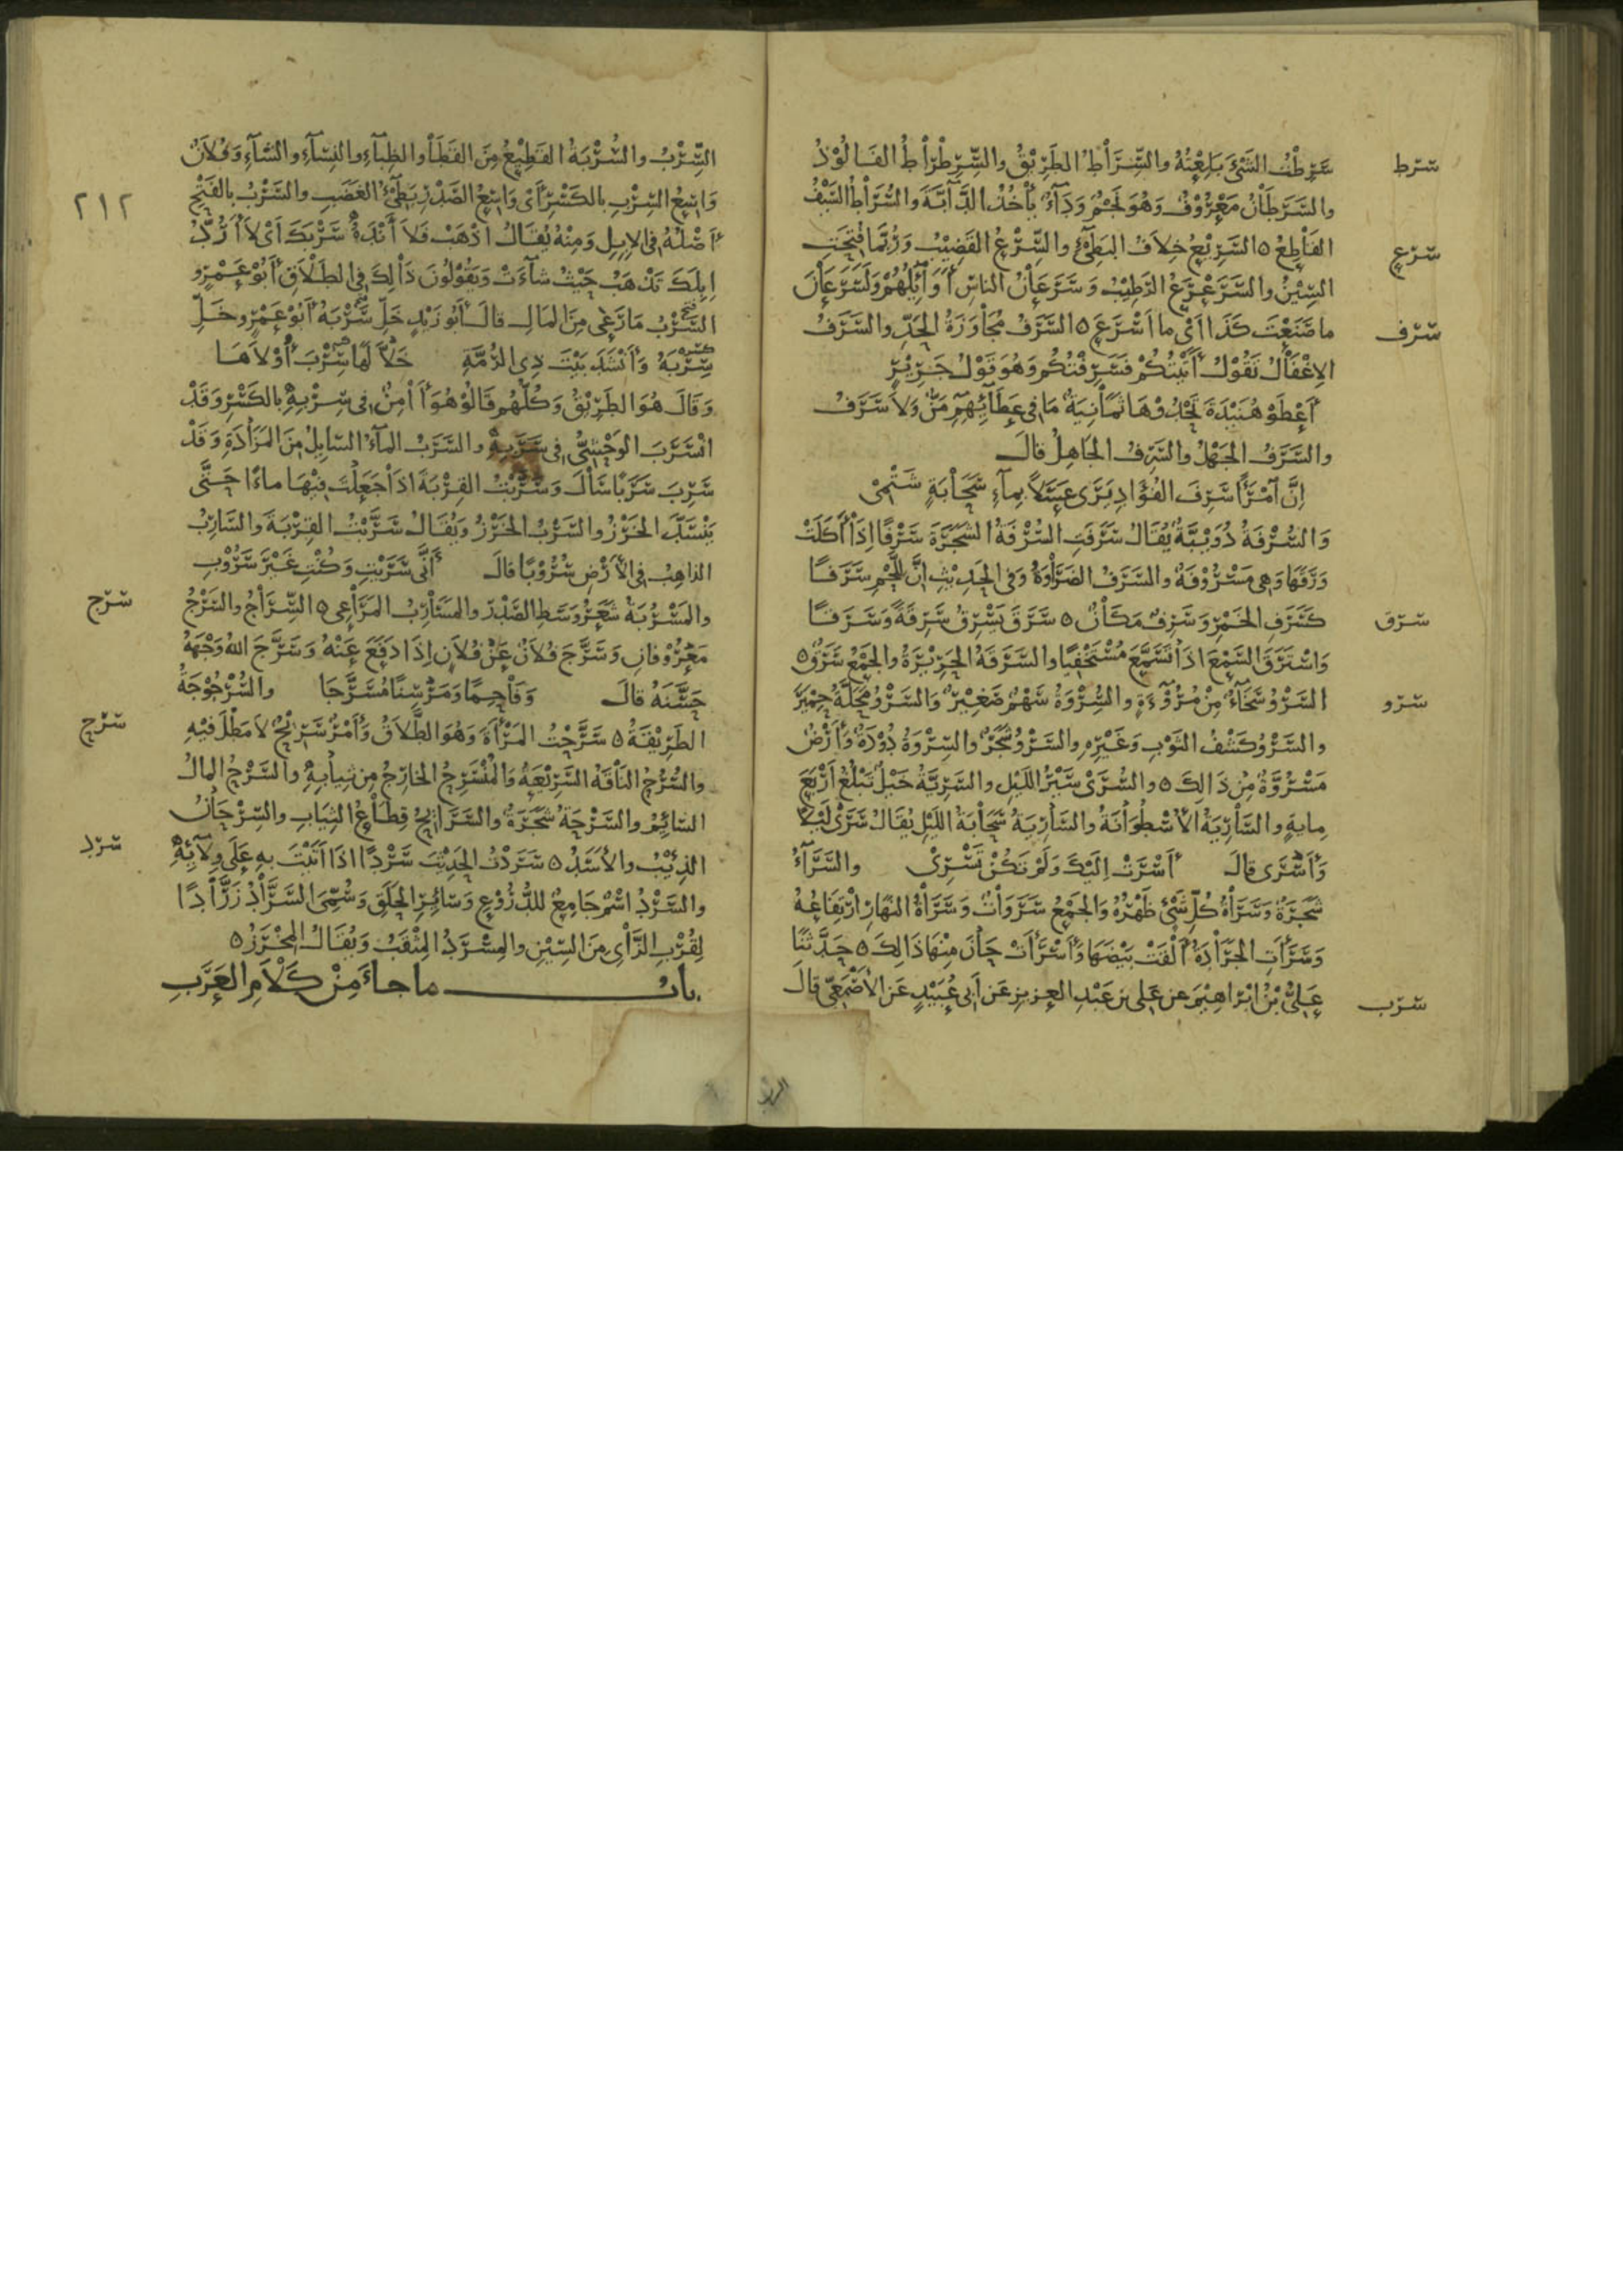 سرط
سَرِطْتُ الشَّيْءَ بَلِعْتُهُ والسِّرَاطُ الطَرِيْقُ والسِّرِطْرَاطُ الفَالُوْذُ
والسَّرَطَانُ مَعْرُوْفٌ وَهُوَ نَجْمٌ وَدَآءٌ يَأخُذُ الدَّآبَّةَ والسُّرَاطُ السَّيْفُ
سرع
القَاطِعُ ٥ السَّرِيْعُ خِلاَفُ البَطِيْءِ والسَّرْعُ القَضِيْبُ وَرُبَّمَا فُتِحَتِ
السِّيْنُ والسَّرَعْرَعُ الرَطِيْبُ وَسَرَعَانُ الناسِ أَوَآئِلُهُمْ وَلَسَرَعَانَ
سرف
ما صَنَعْتَ كَذَا أَيْ ما اَسْرَعَ ٥ السَّرَفُ مُجَاوَزَةُ الحَدِّ والسَّرَفُ
الاِغْفَالُ تَقُوْلُ أَتَيْتُكُمْ فَسَرِفْتُكُم وَهُوَ قَوْلُ جَرِيْرٍ
أَعْطَوْ هُنَيْدَةَ تَحْدُوْهَا ثَمَانِيَةٌ مَا فِي عَطَآئِهِمِ مَنٌّ وَلاَ سَرَفُ
والسَّرَفُ الجَهْلُ والسَّرِفُ الجَاهِلُ قالَ
إِنَّ آمْرَأً سَرِفَ الفُؤَادِ يَرَى عَسَلاً بِمآءِ سَحَابَةٍ شَتْمِيْ
وَالسُّرْفَةُ دُوَيْبَّةٌ يُقَالُ سَرَفَتِ السُّرْفَةُ الشَجَرَةَ سَرْفًا اِذَا أَكَلَتْ
وَرَقَهَا وَهِيَ مَسْرُوْفَةٌ والسَّرَفُ الضَرَاوَةُ وَفِي الحَدِيْثِ اِنَّ لِلَّحْمِ سَرَفًا
سرق
كَسَرَفِ الخَمْرِ وَسَرِفٌ مَكَانٌ ٥ سَرَقَ يَسْرِقُ سَرِقَةً وَسَرَقًا
وَاسْتَرَقَ السَّمْعَ اِذَا تَسَمَّعَ مُسْتَخْفِيًا والسَّرَقَةُ الحَرِيْرَةُ والجَمْعُ سَرَقٌ ٥
سرو
السَّرْوُ سَخَآءٌ مِنْ مُرُوْءَةٍ والسُّرْوَةُ سَهْمٌ صَغِيْرٌ وَالسَّرْوُ مَحَلَّةُ حِمْيَرَ
والسَّرْوُ كَشْفُ الثَوْبِ وَغَيْرِهِ والسَّرْوُ شَجَرٌ والسِّرْوَةُ دُوْدَةٌ وَأَرْضٌ
مَسْرُوَّةٌ مِنْ ذَالِكَ ٥ والسُّرَى سَيْرُ اللَيْلِ والسَّرِيَّةُ خَيْلٌ تَبْلُغُ اَرْبَعَ
مِايةٍ والسَّارِيَةُ الاُسْطُوَانَةُ والسَّارِيَةُ سَحَابَةُ اللَيْلِ يُقَالُ سَرَى لَيْلاً
وَأَسْرَى قالَ أَسْرَتْ اِلَيْكَ وَلَمْ تَكُنْ تَسْرِيْ والسَّرَآءُ
شَجَرَةٌ وَسَرَاةُ كُلِّ شَيْءٍ ظَهْرُهُ وَالجَمْعُ سَرَوَاتٌ وَسَرَاةُ النَهَارِ ارْتِفَاعُهُ
وَسَرَأَتِ الجَرَادَةُ أَلْقَتْ بَيْضَهَا وَأَسْرَأَتْ حَانَ مِنْهَا ذَالِكَ ٥ حَدَّثَنَا
سرب
عَلِيُّ بْنُ ابْرَاهِيْمَ عن عَلِي بن عَبْدِ العَزِيزِ عَن أَبِي عُبَيْدٍ عَن الأَصْمَعِيّ قالَ
٢١٢
السِّرْبُ والسُّرْبَةُ القَطِيْعُ مِنَ القَطَا والظِبَآءِ والنِسَآءِ والشَآءِ وَفُلاَنٌ
وَاسِعُ السِّرْبِ بالكَسْرِ أَيْ وَاسِعُ الصَدْرِ بَطِيْءُ الغَضَبِ والسَّرْبُ بالفَتْحِ
أَصْلُهُ فِي الاِبِلِ وَمِنْهُ يُقَالُ اذْهَبْ فَلاَ أَنْدَهُ سَرْبَكَ أَيْ لاَ أَرُدُّ
اِبِلَكَ تَذْهَبْ حَيْثُ شآءَتْ وَيَقُوْلُونَ ذَالِكَ فِي الطَلاَقِ أَبُوْ عَمْرٍو
السَّرْبُ مَا رَعَى مِنَ المَالِ قالَ أَبُو زَيْدٍ خَلِّ سَرْبَهُ أَبُوْ عَمْرٍو خَلِّ
سِرْبَهُ وَأَنْشَدَ بَيْتَ ذِي الرُمَّةِ خَلاَّ لَهَا سِرْبَ أُوْلاَهَا
وَقَالَ هُوَ الطَرِيْقُ وَكُلُّهُم قَالُوْ هُوَ أَامِنٌ فِي سِرْبِهِ بالكَسْرِ وَقَدْ
انْسَرَبَ الوَحْشِيُّ فِي سَرَبِهِ والسَّرَبُ المآءُ السَّايِلُ مِنَ المَزَادَةِ وَقَدْ
سَرِبَ سَرَبًا سَالَ وَسَرَّبْتُ القِرْبَةَ اِذَا جَعَلْتَ فِيْهَا ماءً حَتَّى
يَنْسَدَّ الخَرْزُ والسَّرْبُ الخَرْزُ وَيُقَالُ سَرَّبْتُ القِرْبَةَ والسَّارِبُ
الذاهِبُ فِي الأَرْضِ سُرُوْبًا قالَ أَنَّى سَرَبْتِ وَكُنْتِ غَيْرَ سَرُوْبِ
سرج
والمَسْرُبَةُ شَعْرُ وَسَطِ الصَدْرِ والمَسَارِبُ المَرَاعِي ٥ السِّرَاجُ والسَّرْجُ
مَعْرُوْفانِ وَسَرَّجَ فُلاَنٌ عَنْ فُلاَنٍ اِذَا دَفَعَ عَنْهُ وَسَرَّجَ اللهُ وَجْهَهُ
حَسَّنَهُ قالَ وَفَاحِمًا وَمَرْسِنًا مُسَرَّجَا والسُّرْجُوْجَةُ
سرح
الطَرِيْقَةُ ٥ سَرَّحْتُ المَرْأَةَ وَهُوَ الطَّلاَقُ وَأَمْرٌ سَرِيْحٌ لاَ مَطْلَ فِيْهِ
والسُّرُحُ النَاقَةُ السَّرِيْعَةُ وَالمُنْسَرِحُ الخارِجُ مِن ثِيَابِهِ والسَّرْحُ المالُ
السَّائِمُ والسَّرْحَةُ شَجَرَةٌ والسَّرَائِحُ قِطَاعُ الثِيَابِ والسِّرْحَانُ
سرد
الذِئْبُ والأَسَدُ ٥ سَرَدْتُ الحَدِيْثَ سَرْدًا اذَا أَتَيْتَ بهِ عَلَى وِلاَئِهِ
والسَّرْدُ اسْمٌ جَامِعٌ للدُّرُوْعِ وَسَائِرِ الحَلَقِ وَسُمِّيَ السَّرَّادُ زَرَّادًا
لِقُرْبِ الزَّايِ مِنَ السِّيْنِ والمِسْرَدُ المِثْقَبُ وَيُقَالُ المِخْرَزُ ٥
بابُ ما جاءَ مِنْ كَلاَمِ العَرَبِ